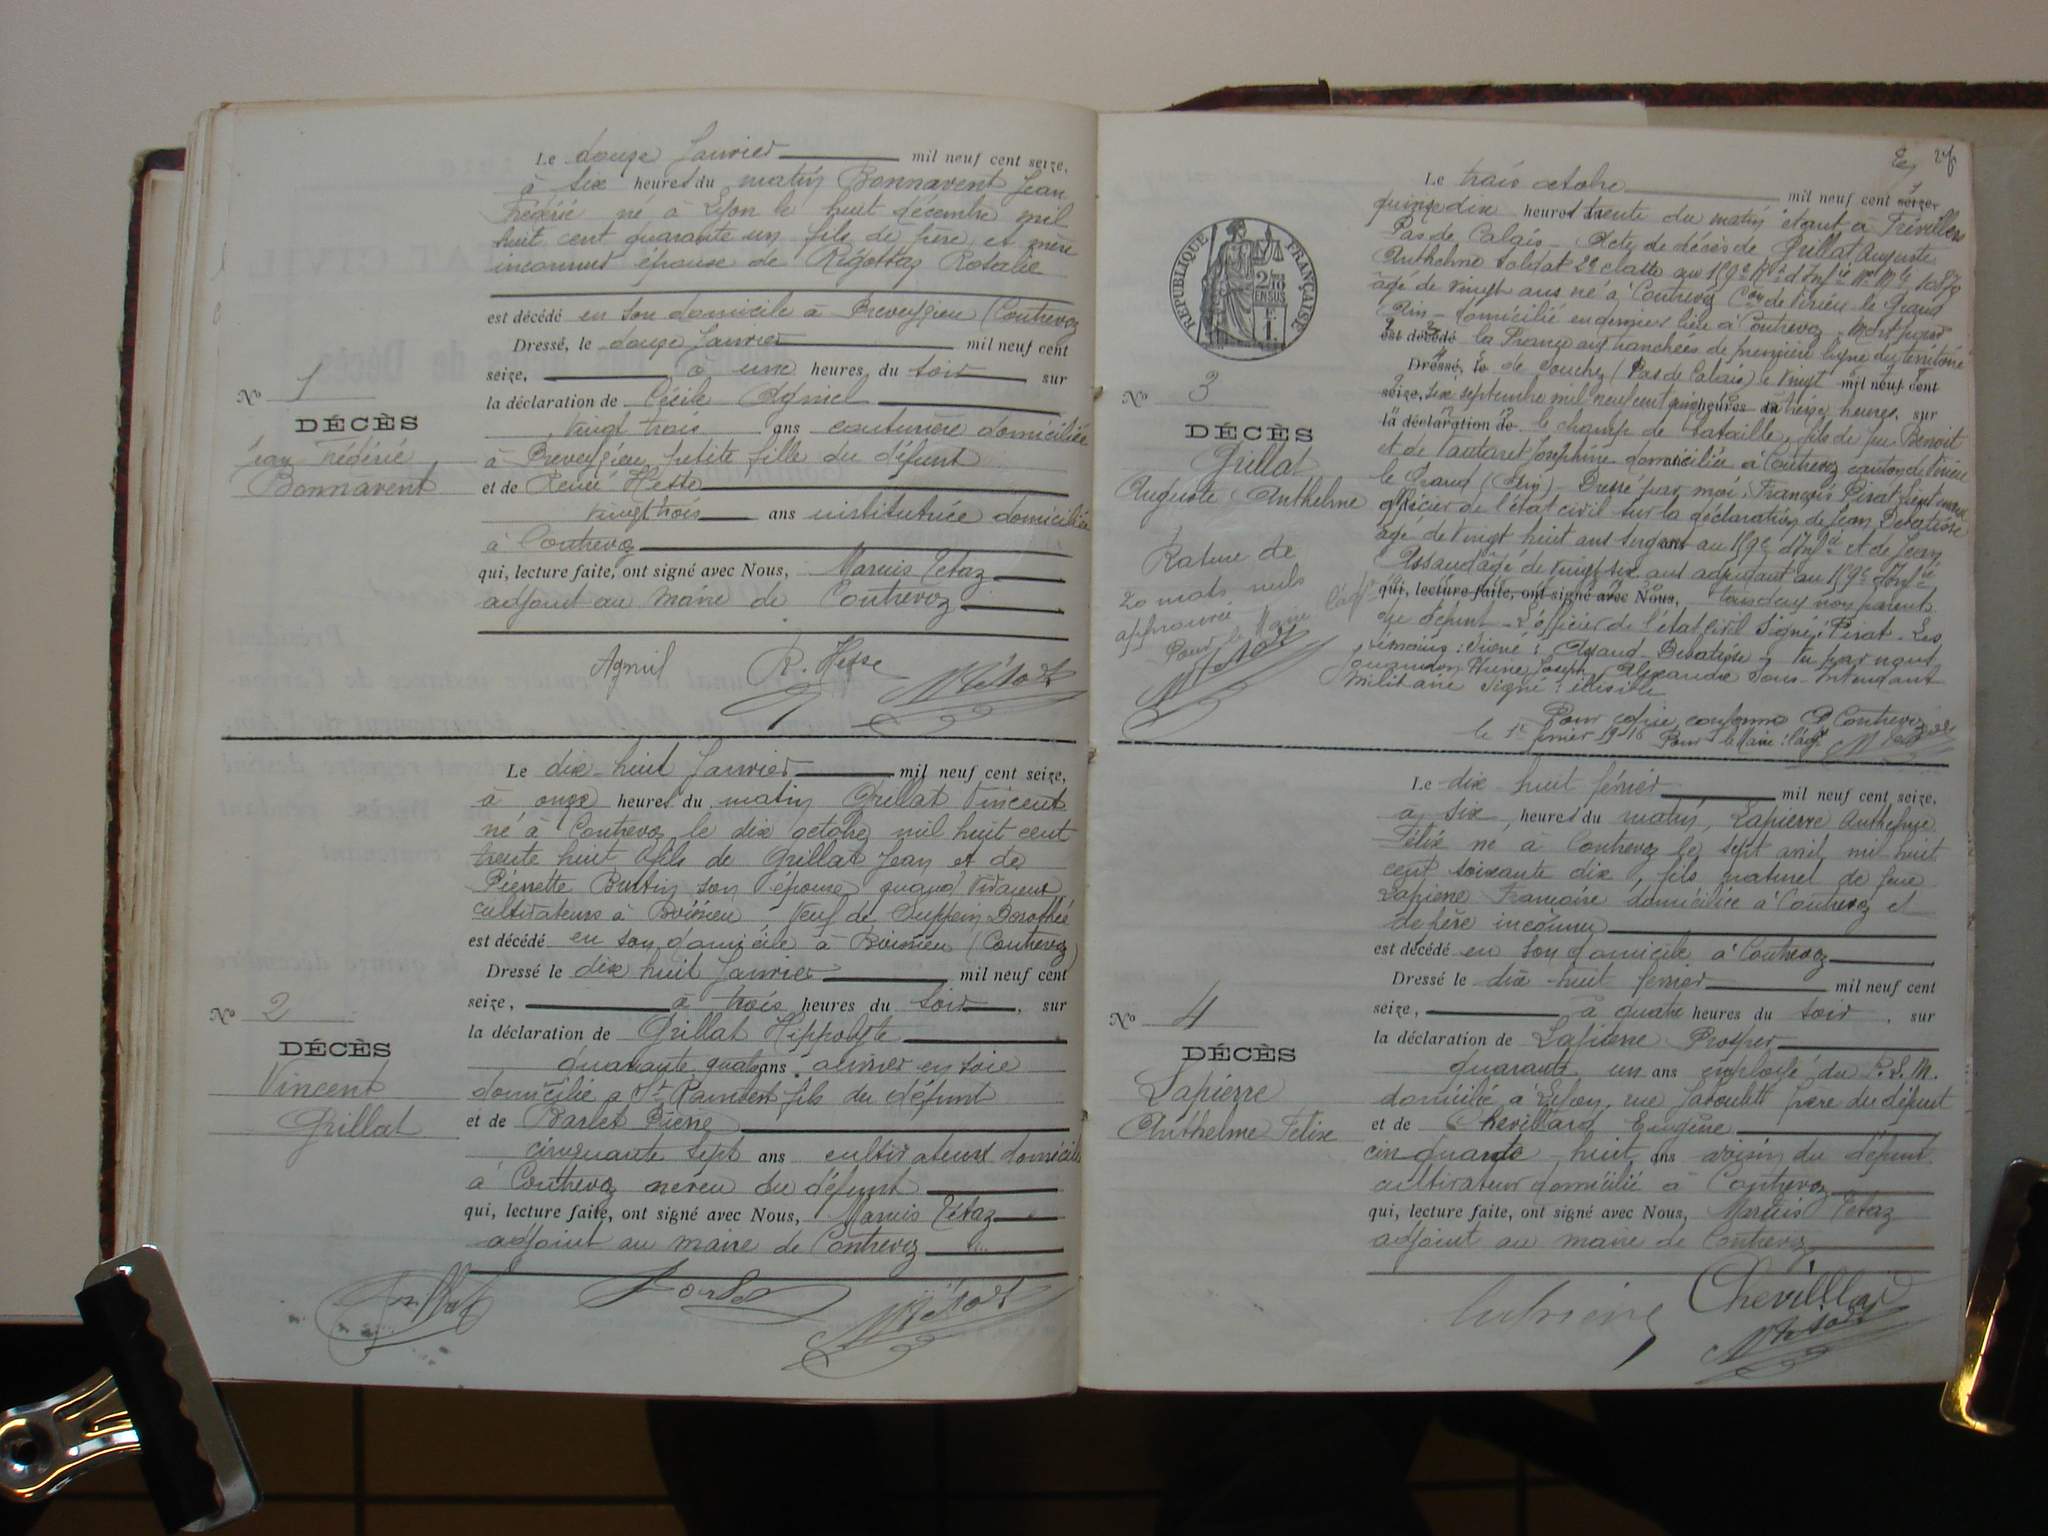 Le douze Janvier mil neuf cent seize,
à six heures du matin Bonnavent Jean
Frédéric né à Lyon le huit décembre mil
huit cent quarante un fils de père et mère
inconnus époux de Rigottaz Rosalie
est décédé en son domicile à Preveyzieu (Contrevoz
Dressé, le douze Janvier mil neuf cent
seize, à une heures du soir sur
la déclaration de Cécile Agniel
vingt trois ans couturière domiciliée
à Preveyzieu petite fille du défunt
et de Renée Hesse
vingt trois ans institutrice domiciliée
à Contrevoz
qui, lecture faite, ont signé avec Nous, Marius Tétaz
adjoint au maire de Contrevoz
No 1
DÉCÈS
Jean Frédéric
Bonnavent
Agniel R. Hesse
Le dix-huit Janvier mil neuf cent seize,
à onze heures du matin Grillat Vincent
né à Contrevoz le dix octobre mil huit cent
trente huit fils de Grillat Jean et de
Pierrette Burtin son épouse quand vivaient
cultivateurs à Boissieu veuf de Duppein Dorothée
est décédé en son domicile à Boissieu (Contrevoz)
Dressé le dix huit Janvier mil neuf cent
seize, à trois heures du soir, sur
la déclaration de Grillat Hippolyte
quarante quatre ans, ouvrier en soie
domicilié à St Rambert fils du défunt
et de Barlet Pierre
cinquante sept ans cultivateur domicilié
à Contrevoz neveu du défunt
qui, lecture faite, ont signé avec Nous, Marius Tétaz
adjoint au maire de Contrevoz
No 2
DÉCÈS
Vincent
Grillat
RÉPUBLIQUE FRANÇAISE
2/10
EN SUS
1 F
Le trois octobre mil neuf cent seize,
quinze dix heures trente du matin étant à Frévillers
Pas de Calais - Acte de décès de Grillat Auguste
Anthelme soldat 2e classe au 159e Rgt d'Infie
âgé de vingt ans né à Contrevoz Con de Virieu le Grand
Ain - domicilié en dernier lieu à Contrevoz. Mort pour
est décédé la France aux tranchées de première ligne du territoire
Dressé, le de Souchez (Pas de Calais) le vingt mil neuf cent
seize, six septembre mil neuf cent quinze heures du treize heures, sur
la déclaration de le champ de bataille, fils de feu Benoît
et de Vautaret Joséphine domiciliée à Contrevoz canton de Virieu
le Grand (Ain) - Dressé par moi, François Pirat Lieutenant
officier de l'état civil sur la déclaration de Jean
âgé de vingt huit ans sergent au 159e d'Infie et de Jean
Assaud âgé de vingt six ans adjudant au 159e d'Infie
qui, lecture faite, ont signé avec Nous, tous deux non parents
du défunt - L'officier de l'état civil signé: Pirat - Les
témoins: signé: Assaud - Vu par nous
Joseph Alexandre Sous-Intendant
Militaire signé: illisible
Pour copie conforme A Contrevoz
le 1er février 1916 Pour le maire: l'adjt
No 3
DÉCÈS
Grillat
Auguste Anthelme
Rature de
20 mots nuls
approuvée
Pour le Maire l'adjt
Le dix huit février mil neuf cent seize,
à six, heures du matin, Lapierre Anthelme
Félix né à Contrevoz le sept avril mil huit
cent soixante dix, fils naturel de feue
Lapierre Françoise domiciliée à Contrevoz et
de père inconnu
est décédé en son domicile à Contrevoz
Dressé le dix-huit février mil neuf cent
seize, à quatre heures du soir, sur
la déclaration de Lapierre Prosper
quarante un ans employé du P.L.M.
domicilié à Lyon, rue frère du défunt
et de Chevillard Eugène
cinquante huit ans voisin du défunt
cultivateur domicilié à Contrevoz
qui, lecture faite, ont signé avec Nous, Marius Tétaz
adjoint au maire de Contrevoz
No 4
DÉCÈS
Lapierre
Anthelme Felix